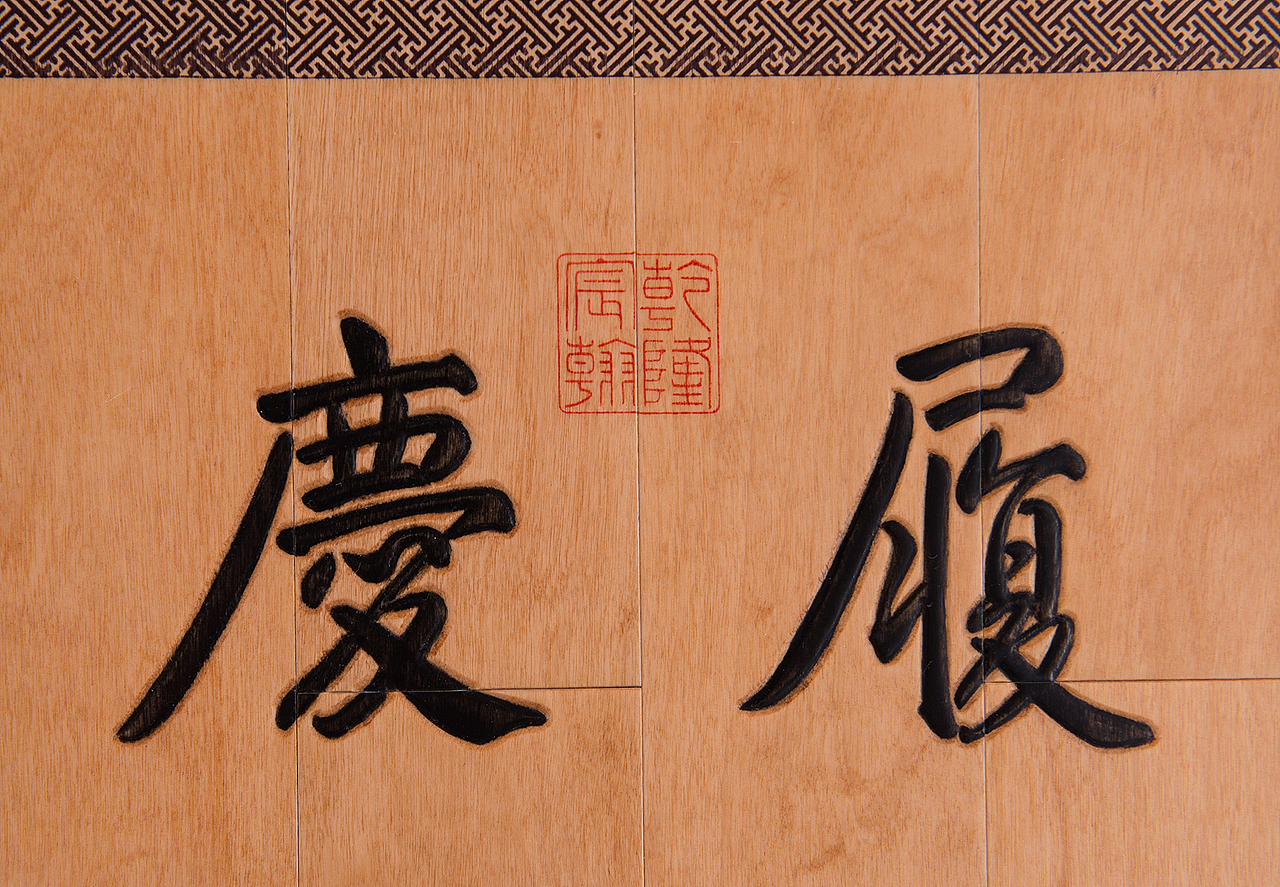 履慶
乾隆
宸翰